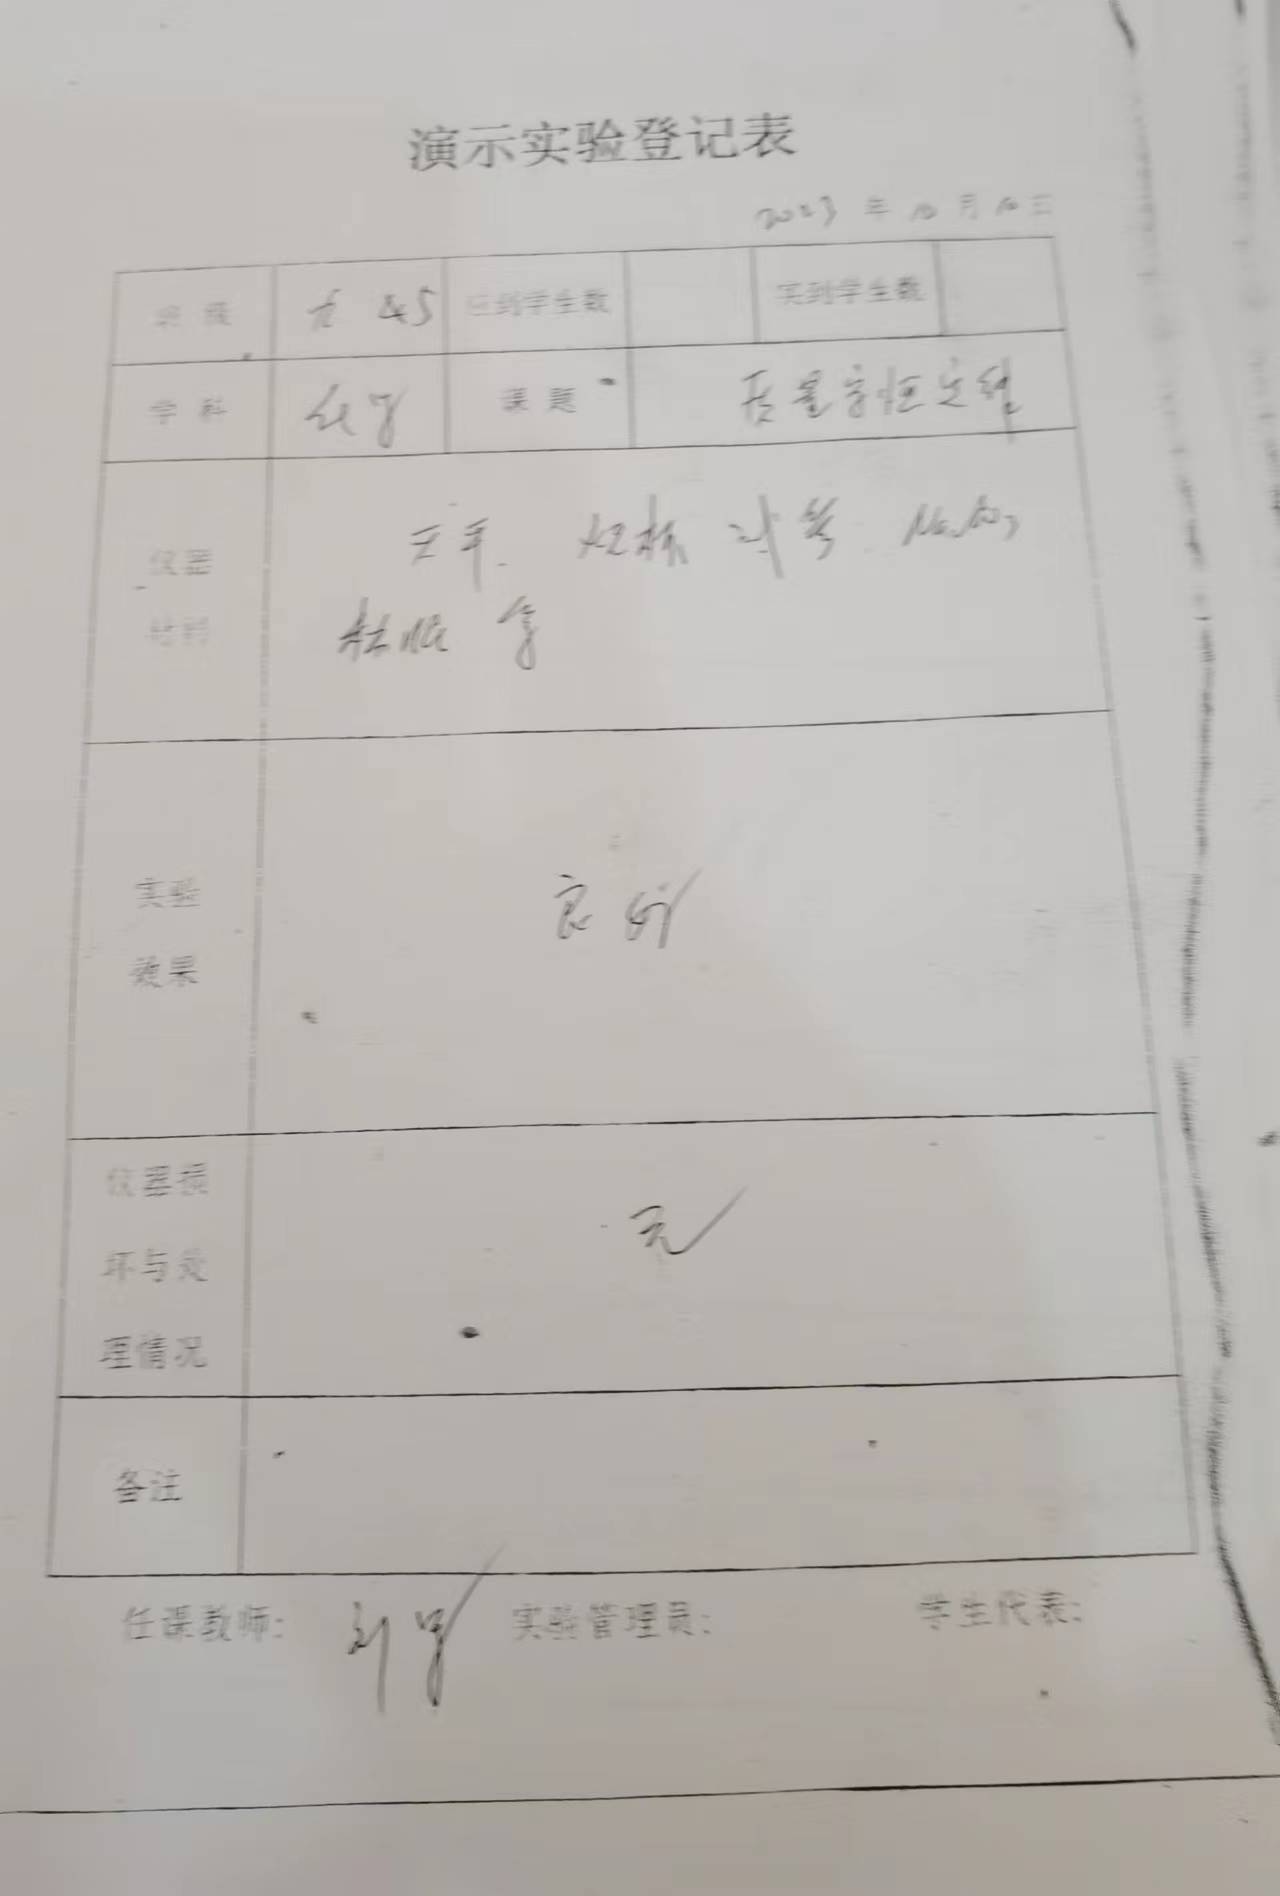 演示实验登记表
2023 年 10 月 10 日
班 级 九 45 应到学生数 实到学生数
学 科 化学 课 题 质量守恒定律
仪器
材料
天平 烧杯 试管 Na₂CO₃
实验
效果
良好
仪器损
坏与处
理情况
无
备注
任课教师: 实验管理员: 学生代表: